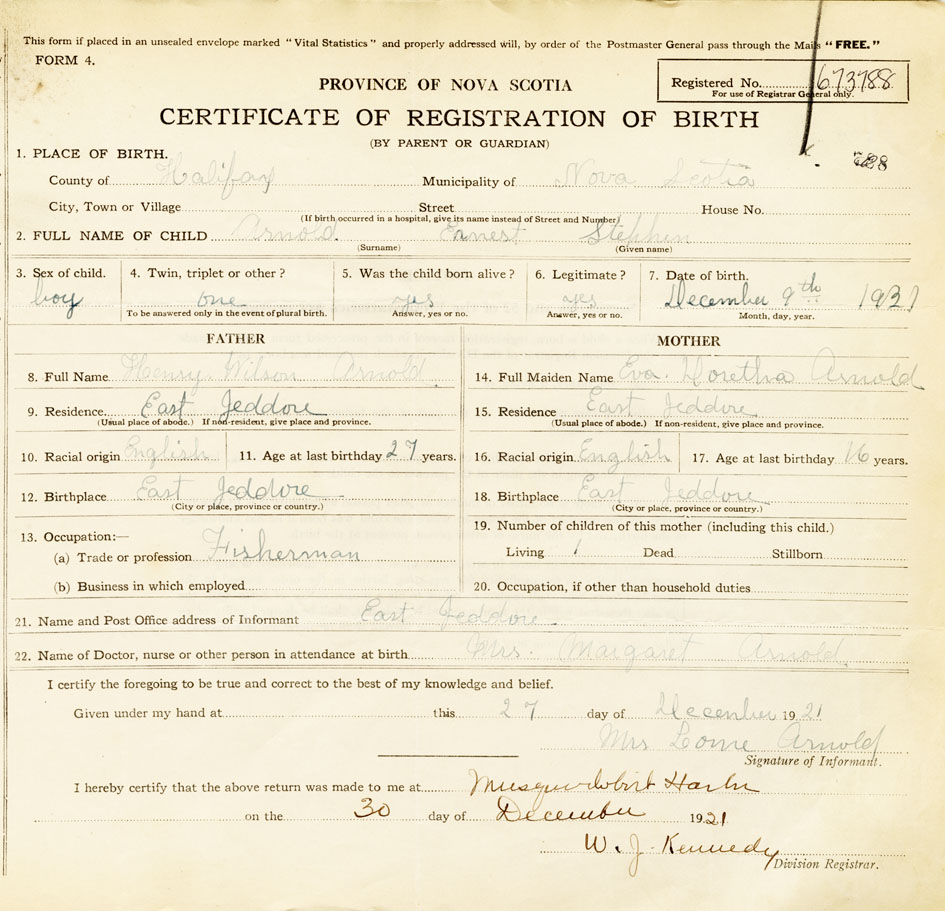 This form if placed in an unsealed envelope marked "Vital Statistics" and properly addressed will, by order of the Postmaster General pass through the Mails "FREE."
FORM 4.
PROVINCE OF NOVA SCOTIA
Registered No. 673788
For use of Registrar General only.
CERTIFICATE OF REGISTRATION OF BIRTH
(BY PARENT OR GUARDIAN)
1. PLACE OF BIRTH.
County of Halifax Municipality of Nova Scotia
City, Town or Village Street House No.
(If birth occurred in a hospital, give its name instead of Street and Number)
2. FULL NAME OF CHILD Arnold Ernest Stephen
(Surname) (Given name)
3. Sex of child. 4. Twin, triplet or other? 5. Was the child born alive? 6. Legitimate? 7. Date of birth.
boy one yes yes December 9th 1921
To be answered only in the event of plural birth. Answer, yes or no. Answer, yes or no. Month, day, year.
FATHER MOTHER
8. Full Name Henry Wilson Arnold 14. Full Maiden Name Eva Doretha Arnold
9. Residence East Jeddore 15. Residence East Jeddore
(Usual place of abode.) If non-resident, give place and province. (Usual place of abode.) If non-resident, give place and province.
10. Racial origin English 11. Age at last birthday 27 years. 16. Racial origin English 17. Age at last birthday 16 years.
12. Birthplace East Jeddore 18. Birthplace East Jeddore
(City or place, province or country.) (City or place, province or country.)
13. Occupation:— 19. Number of children of this mother (including this child.)
(a) Trade or profession Fisherman Living 1 Dead Stillborn
(b) Business in which employed 20. Occupation, if other than household duties
21. Name and Post Office address of Informant East Jeddore
22. Name of Doctor, nurse or other person in attendance at birth Mrs. Margaret Arnold
I certify the foregoing to be true and correct to the best of my knowledge and belief.
Given under my hand at this 27 day of December 1921
Mrs Lorne Arnold
Signature of Informant.
I hereby certify that the above return was made to me at Musquodoboit Harbr
on the 30 day of December 1921
W. J. Kennedy
Division Registrar.